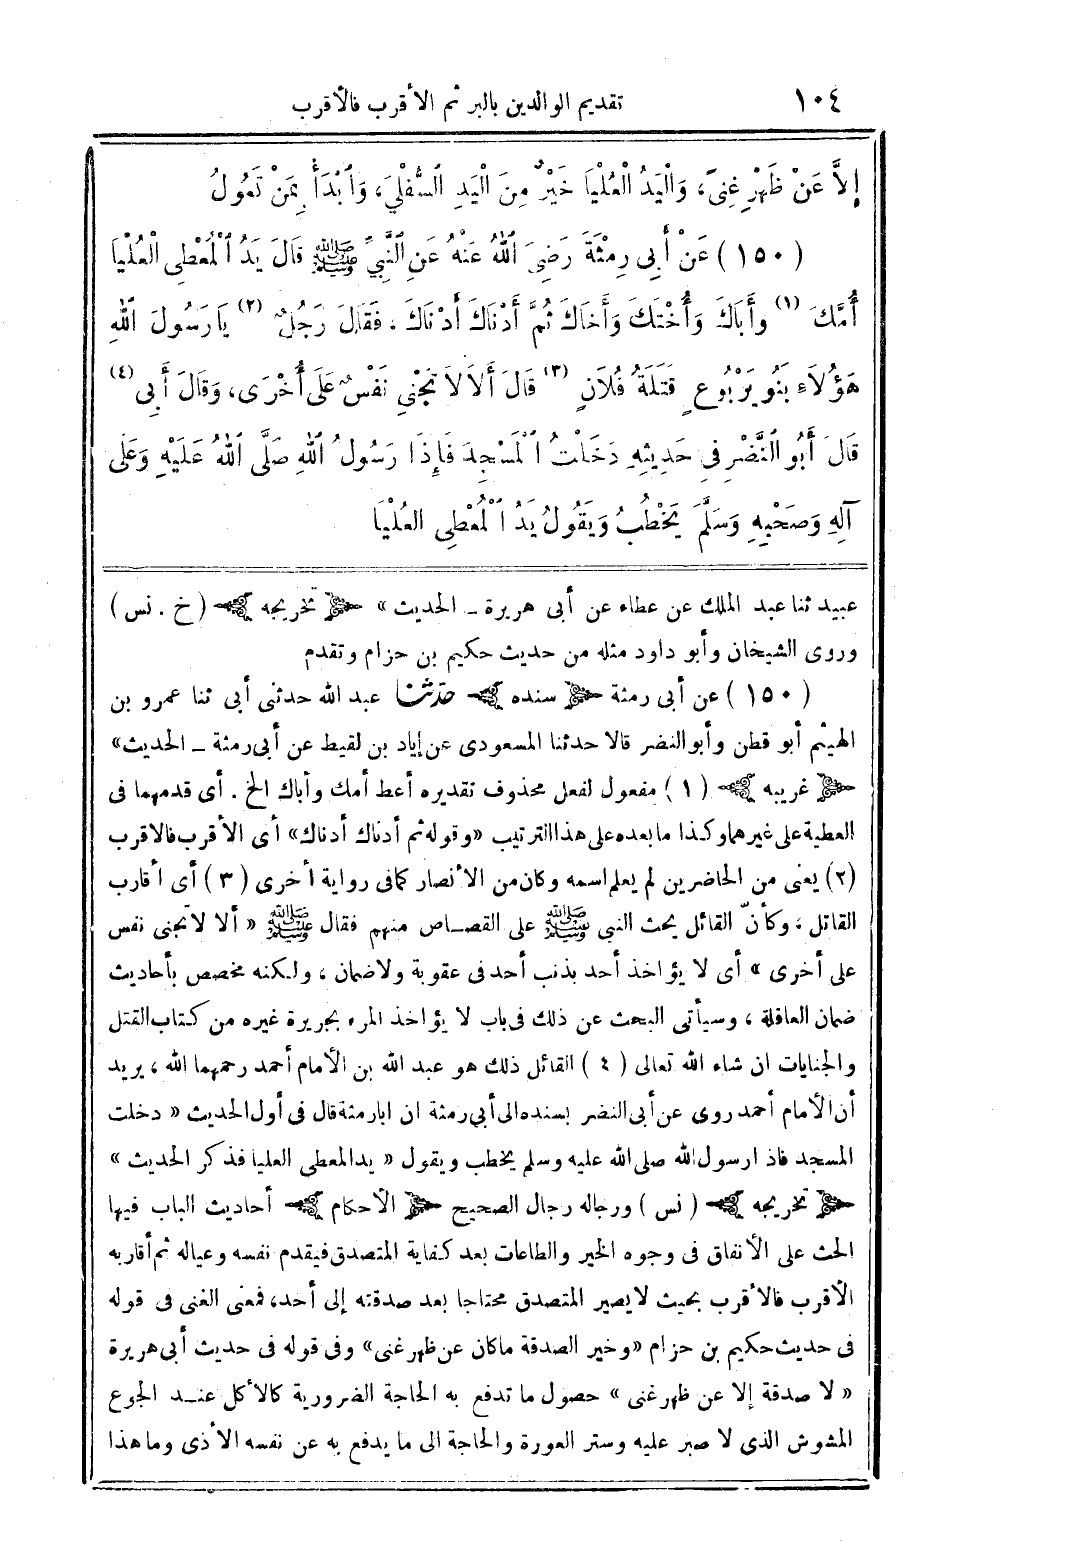 ١٠٤ تقديم الوالدين بالبر ثم الأقرب فالأقرب
إِلاَّ عَنْ ظَهْرِ غِنىً، وَالْيَدُ الْعُلْيَا خَيْرٌ مِنَ الْيَدِ السُّفْلَي، وَابْدَأْ بِمَنْ تَعُولُ
(١٥٠) عَنْ أَبِي رِمْثَةَ رَضِيَ اللهُ عَنْهُ عَنِ النَّبِيِّ ﷺ قَالَ يَدُ الْمُعْطِي الْعُلْيَا
أُمَّكَ (١) وأَبَاكَ وَأُخْتَكَ وَأَخَاكَ ثُمَّ أَدْنَاكَ أَدْنَاكَ، فَقَالَ رَجُلٌ (٢) يَارَسُولَ اللهِ
هَؤُلَاءِ بَنُو يَرْبُوعٍ قَتَلَةُ فُلاَنٍ (٣) قَالَ أَلاَ لاَ تَجْنِي نَفْسٌ عَلَى أُخْرَى، وَقَالَ أَبِي (٤)
قَالَ أَبُو النَّضْرِ فِي حَدِيثِهِ دَخَلْتُ الْمَسْجِدَ فَإِذَا رَسُولُ اللهِ صَلَّى اللهُ عَلَيْهِ وَعَلَى
آلِهِ وَصَحْبِهِ وَسَلَّمَ يَخْطُبُ وَيَقُولُ يَدُ الْمُعْطِي العُلْيَا
عبيد ثنا عبد الملك عن عطاء عن أبى هريرة ــ الحديث » ﴿ تخريجه ﴾ (خ . نس)
وروى الشيخان وأبو داود مثله من حديث حكيم بن حزام وتقدم
(١٥٠) عن أبى رمثة ﴿ سنده ﴾ حدثنا عبد الله حدثنى أبى ثنا عمرو بن
الهيثم أبو قطن وأبو النضر قالا حدثنا المسعودى عن إياد بن لقيط عن أبى رمثة ــ الحديث»
﴿ غريبه ﴾ (١) مفعول لفعل محذوف تقديره أعط أمك وأباك الخ . أى قدمهما فى
العطية على غيرهما وكذا ما بعده على هذا الترتيب «وقوله ثم أدناك أدناك» أى الأقرب فالاقرب
(٢) يعنى من الحاضرين لم يعلم اسمه وكان من الأنصار كما فى رواية أخرى (٣) أى أقارب
القاتل ، وكأنّ القائل يحث النبى ﷺ على القصـاص منهم فقال ﷺ « ألا لا تجنى نفس
على أخرى » أى لا يؤاخذ أحد بذنب أحد فى عقوبة ولاضمان ، ولكنه مخصص بأحاديث
ضمان العاقلة ، وسيأتى البحث عن ذلك فى باب لا يؤاخذ المرء بجريرة غيره من كتاب القتل
والجنايات ان شاء الله تعالى (٤) القائل ذلك هو عبد الله بن الأمام أحمد رحمهما الله ، يريد
أن الأمام أحمد روى عن أبى النضر بسنده الى أبى رمثة ان ابا رمثة قال فى أول الحديث « دخلت
المسجد فاذا رسول الله صلى الله عليه وسلم يخطب ويقول « يد المعطى العليا فذكر الحديث »
﴿ تخريجه ﴾ (نس) ورجاله رجال الصحيح ﴿ الأحكام ﴾ أحاديث الباب فيها
الحث على الأنفاق فى وجوه الخير والطاعات بعد كفاية المتصدق فيقدم نفسه وعياله ثم أقاربه
الأقرب فالأقرب بحيث لا يصير المتصدق محتاجا بعد صدقته إلى أحد، فمعنى الغنى فى قوله
فى حديث حكيم بن حزام «وخير الصدقة ما كان عن ظهر غنى» وفى قوله فى حديث أبى هريرة
« لا صدقة إلا عن ظهر غنى » حصول ما تدفع به الحاجة الضرورية كالأكل عنـد الجوع
المشوش الذى لا صبر عليه وستر العورة والحاجة الى ما يدفع به عن نفسه الأذى وما هذا